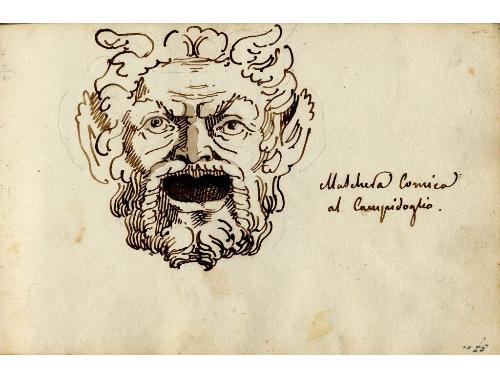 Maschera Comica
al Campidoglio.